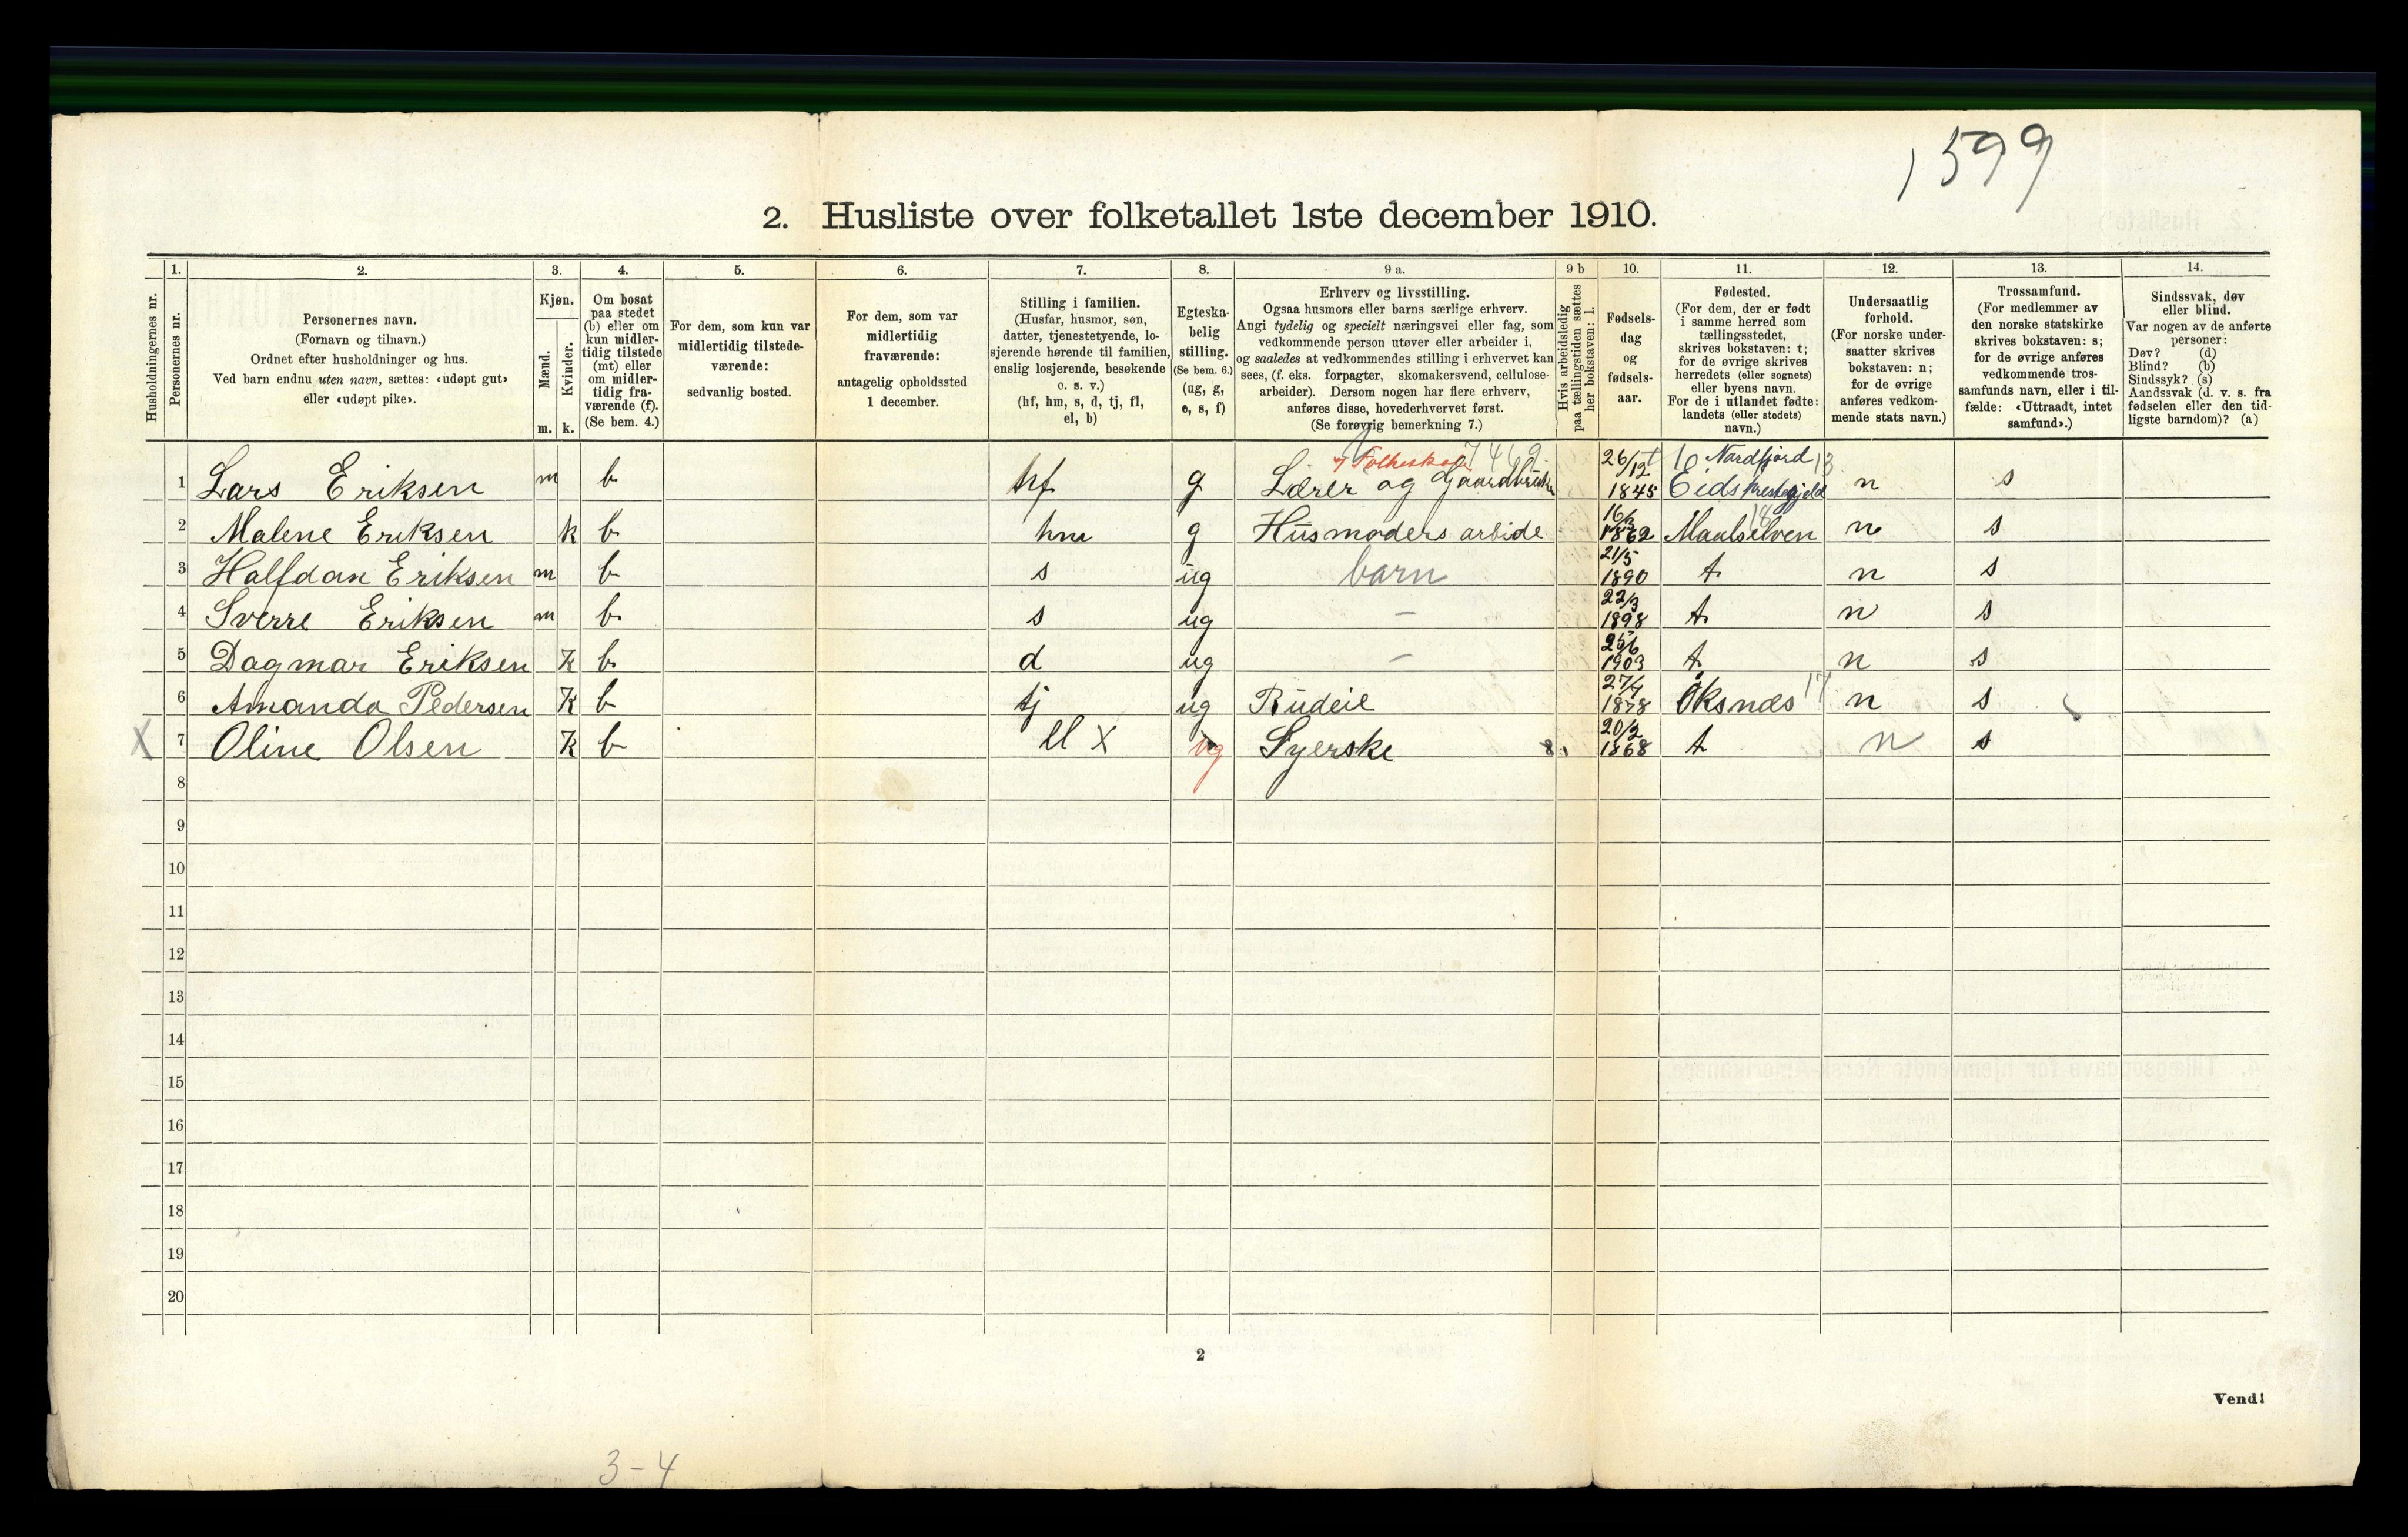 1599
2. Husliste over folketallet 1ste december 1910.
Husholdningernes nr.
1.
Personernes nr.
2.
Personernes navn.
(Fornavn og tilnavn.)
Ordnet efter husholdninger og hus.
Ved barn endnu uten navn, sættes: «udøpt gut»
eller «udøpt pike».
3.
Kjøn.
Mænd.
Kvinder.
m. k.
4.
Om bosat
paa stedet
(b) eller om
kun midler-
tidig tilstede
(mt) eller
om midler-
tidig fra-
værende (f).
(Se bem. 4.)
5.
For dem, som kun var
midlertidig tilstede-
værende:
sedvanlig bosted.
6.
For dem, som var
midlertidig
fraværende:
antagelig opholdssted
1 december.
7.
Stilling i familien.
(Husfar, husmor, søn,
datter, tjenestetyende, lo-
sjerende hørende til familien,
enslig losjerende, besøkende
o. s. v.)
(hf, hm, s, d, tj, fl,
el, b)
8.
Egteska-
belig
stilling.
(Se bem. 6.)
(ug, g,
e, s, f)
9 a.
Erhverv og livsstilling.
Ogsaa husmors eller barns særlige erhverv.
Angi tydelig og specielt næringsvei eller fag, som
vedkommende person utøver eller arbeider i,
og saaledes at vedkommendes stilling i erhvervet kan
sees, (f. eks. forpagter, skomakersvend, cellulose-
arbeider). Dersom nogen har flere erhverv,
anføres disse, hovederhvervet først.
(Se forøvrig bemerkning 7.)
9 b
Hvis arbeidsledig
paa tællingstiden sættes
her bokstaven: l.
10.
Fødsels-
dag
og
fødsels-
aar.
11.
Fødested.
(For dem, der er født
i samme herred som
tællingsstedet,
skrives bokstaven: t;
for de øvrige skrives
herredets (eller sognets)
eller byens navn.
For de i utlandet fødte:
landets (eller stedets)
navn.)
12.
Undersaatlig
forhold.
(For norske under-
saatter skrives
bokstaven: n;
for de øvrige
anføres vedkom-
mende stats navn.)
13.
Trossamfund.
(For medlemmer av
den norske statskirke
skrives bokstaven: s;
for de øvrige anføres
vedkommende tros-
samfunds navn, eller i til-
fælde: «Uttraadt, intet
samfund».)
14.
Sindssvak, døv
eller blind.
Var nogen av de anførte
personer:
Døv? (d)
Blind? (b)
Sindssyk? (s)
Aandssvak (d. v. s. fra
fødselen eller den tid-
ligste barndom)? (a)
7469 26/12 t 10 Nordfjord 13
1 Lars Eriksen m b hf g Lærer og Gaardbruker 1845 Eids Prestegjeld n s
16/ 18
2 Malene Eriksen k b hm g Husmoders arbide 1862 Maalselven n s
21/5
3 Halfdan Eriksen m b s ug barn 1890 t n s
22/3
4 Sverre Eriksen m b s ug — 1898 t n s
25/6
5 Dagmar Eriksen K b d ug — 1903 t n s
27/4 17
6 Amanda Pedersen K b tj ug Budeie 1878 Öksnes n s
20/2
X 7 Oline Olsen K b el X ug Syerske 8. 1868 t n s
8
9
10
11
12
13
14
15
16
17
18
19
20
2
Vend!
3-4